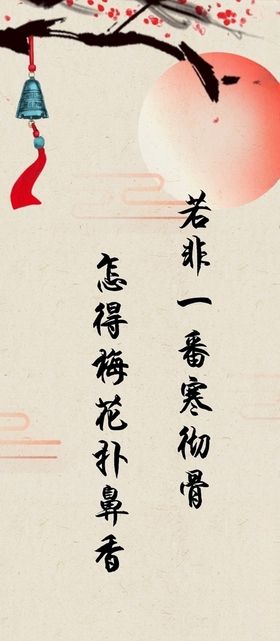 若非一番寒彻骨
怎得梅花扑鼻香